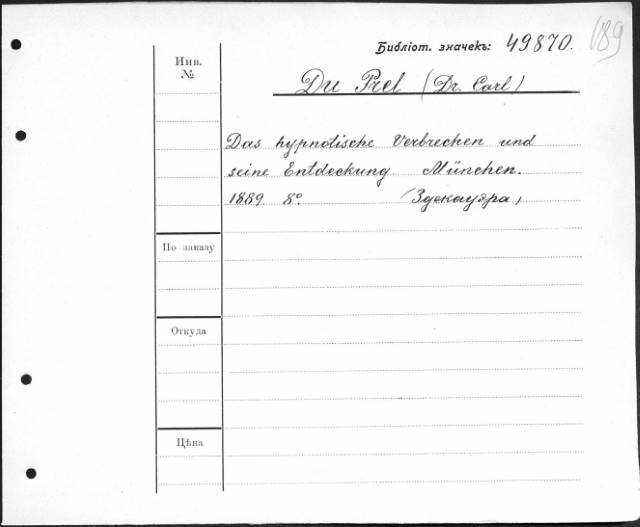 Библіот. значекъ: 49870.
189
Инв.
№
Du Prel (Dr. Carl)
Das hypnotische Verbrechen und
seine Entdeckung München.
1889 8°. (Здекауэра)
По заказу
Откуда
Цѣна